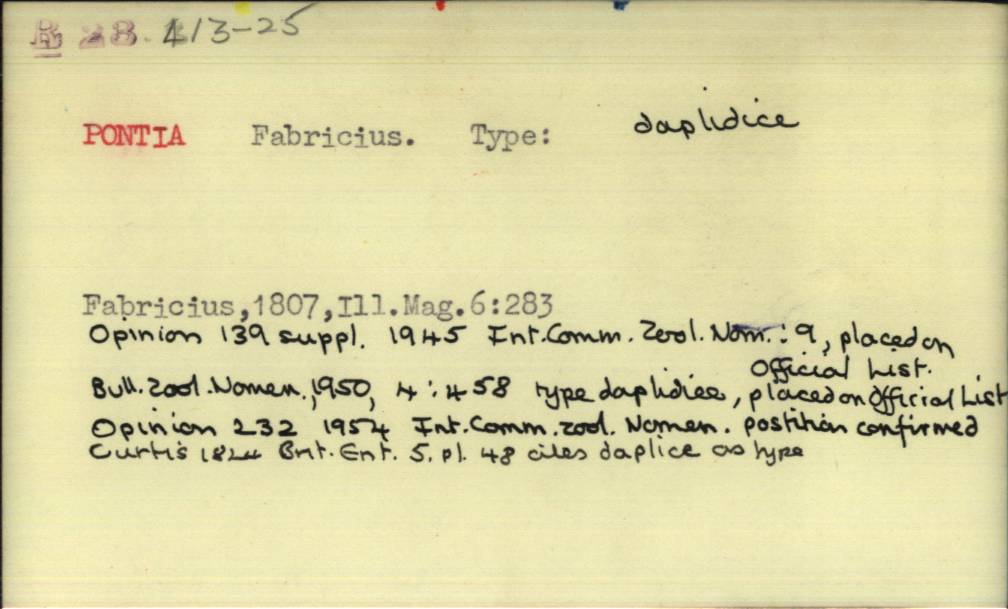 B 28. 413-25
PONTIA Fabricius. Type: daplidice
Fabricius,1807,Ill.Mag.6:283
Opinion 139 suppl. 1945 Int.Comm. Zool. Nom.: 9, placed on
Official List.
Bull. Zool. Nomen., 1950, 4: 458 type daplidice, placed on Official List
Opinion 232 1954 Int.Comm. zool. Nomen. postition confirmed
Curtis 1824 Brit. Ent. 5. pl. 48 cites daplice as type